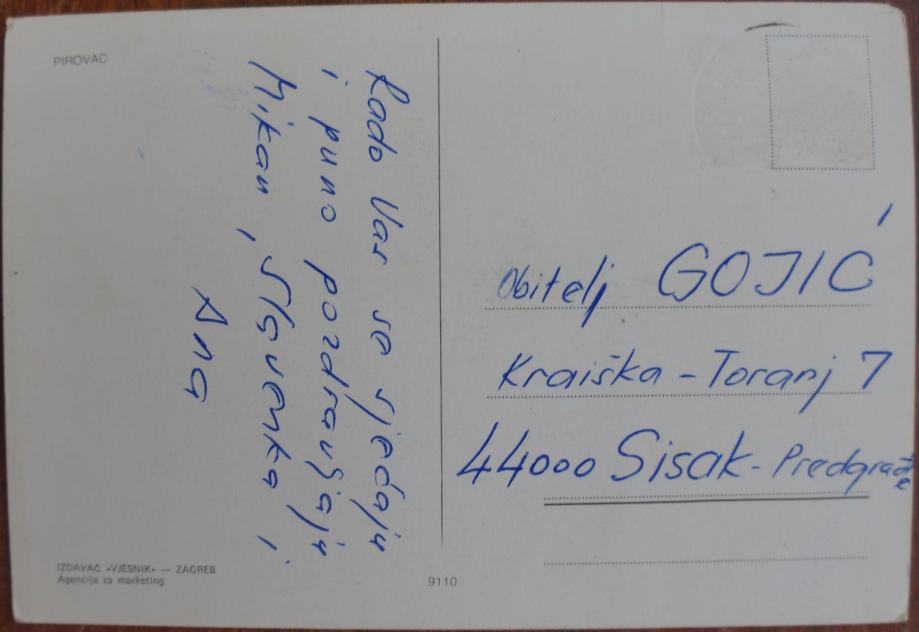 PIROVAC
Rado Vas se sjećaju
i puno pozdravljaju
Mikan, Slavenka i
Ana
Obitelj GOJIĆ
Kraiška - Toranj 7
44000 Sisak - Predgrađe
IZDAVAČ «VJESNIK» — ZAGREB
Agencija za marketing
9110